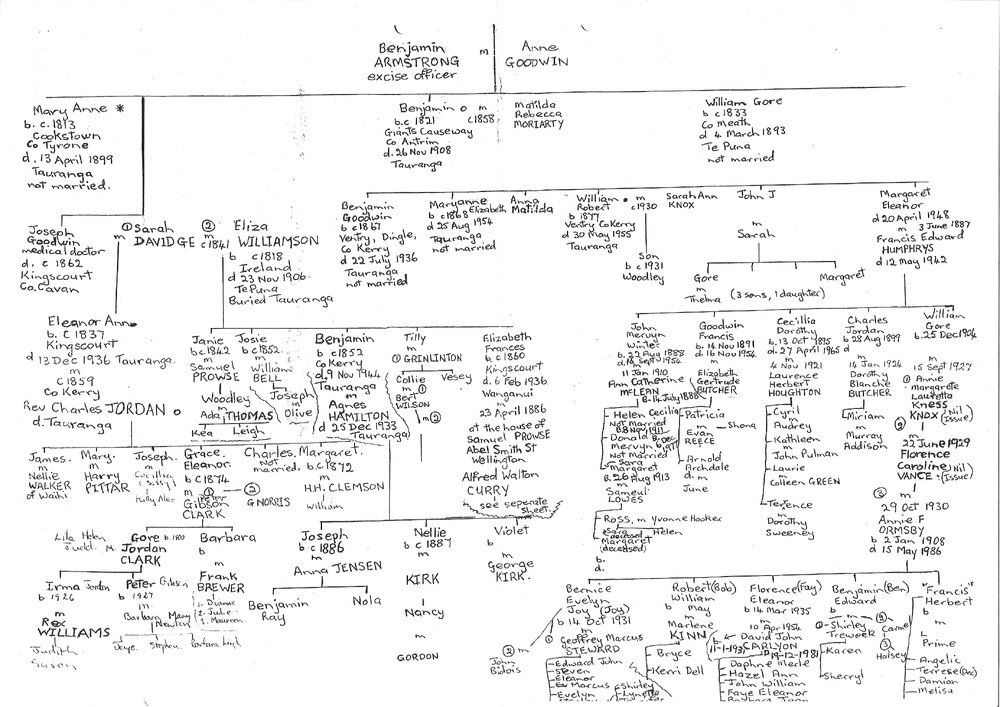 Benjamin
ARMSTRONG
excise officer
m
Anne
GOODWIN
Mary Anne *
b. c.1813
Cookstown
Co Tyrone
d. 13 April 1899
Tauranga
not married.
Benjamin o m
b.c 1821 c1858
Giants Causeway
Co Antrim
d. 26 Nov 1908
Tauranga
Matilda
Rebecca
MORIARTY
William Gore
b c 1833
Co Meath
d 4 March 1893
Te Puna
not married
Joseph
Goodwin
medical doctor
d. c 1862
Kingscourt
Co. Cavan
① Sarah
m DAVIDGE
② Eliza
m WILLIAMSON
c1841
b c1818
Ireland
d 23 Nov 1906.
Te Puna
Buried Tauranga
Benjamin
Goodwin
b c1867
Ventry, Dingle,
Co Kerry
d 22 July 1936
Tauranga
not married
Maryanne
b c1868 Elizabeth
d 25 Aug 1954
Tauranga
not married
Anna
Matilda
William • m
Robert c1930
b 1877
Ventry Co Kerry
d 30 May 1955
Tauranga
Sarah Ann
KNOX
Son
b c1931
Woodley
John J
m
Sarah
Margaret
Eleanor
d 20 April 1948
m 3 June 1887
Francis Edward
HUMPHRYS
d 12 May 1942
Gore
m
Thelma (3 sons, 1 daughter)
Margaret
Eleanor Ann
b. c 1837
Kingscourt
d 13 Dec 1936 Tauranga.
m
c1859
Co Kerry
Rev Charles JORDAN o
d. Tauranga
Janie
b c1842
m
Samuel
PROWSE
Josie
b c1852
m
William
BELL
Woodley
m
Ada THOMAS
Kea Leigh
Joseph
Olive
Benjamin
b c1852
Co Kerry
d. 9 Nov 1944
Tauranga
m
Agnes
HAMILTON
d 25 Dec 1933
Tauranga
Tilly
m
① GRINLINTON
Collie
m ①
Bert
WILSON
m ②
Vesey
Elizabeth
Frances
b. c 1860
Kingscourt
d. 6 Feb 1936
Wanganui
m
23 April 1886
at the house of
Samuel PROWSE
Abel Smith St
Wellington
Alfred Walton
CURRY
see separate
sheet
John
Mervyn
Winter
b. 22 Aug 1888
m
11 Jan 1910
Ann Catherine
McLEAN
B. 14 July 1888
Goodwin
Francis
b. 16 Nov 1891
d. 16 Nov 1954
m
Elizabeth
Gertrude
BUTCHER
Cecillia
Dorothy
b. 13 Oct 1895
d. 27 April 1965
m
4 Nov 1921
Laurence
Herbert
HOUGHTON
Charles
Jordan
b 28 Aug 1899
d
m
14 Jan 1924
Dorothy
Blanchie
BUTCHER
William
Gore
b. 25 Dec 1904
m
15 Sept 1927
① Annie
Margarete
Lauretta
Kness
KNOX (Nil Issue)
②
m
22 June 1929
Florence
Caroline (Nil)
VANCE (Issue)
③
m
29 Oct 1930
Annie F
ORMSBY
b 2 Jan 1908
d 15 May 1986
Helen Cecilia
Not Married
B. 8 Nov 1911
Donald
Mervyn
Not Married
Sara
Margaret
B. 26 Aug 1913
m
Samuel
LOWES
Ross, m Yvonne Hooker
Helen
Margaret
(deceased)
b.
d.
Patricia
m
Evan
REECE
Shona
Arnold
Archdale
d. m
June
Cyril
m
Audrey
Kathleen
m
John Pulman
Laurie
m
Colleen GREEN
Terence
m
Dorothy
Sweeney
Miriam
m
Murray
Addison
James.
m
Nellie
WALKER
of Waihi
Mary.
m
Harry
PITTAR
Joseph.
m
Grace.
Eleanor
b c1874
m ①
Peter
Gibson
CLARK
②
G NORRIS
Charles.
Not
married.
Margaret.
b.c 1872
m
H.H. CLEMSON
William
Gore b. 1900
Jordan
CLARK
Barbara
b
m
Frank
BREWER
1. Dianne
2. Julie
3. Maureen
Joseph
b c 1886
m
Anna JENSEN
Benjamin
Ray
Nola
Nellie
b c 1887
m
KIRK
Nancy
m
GORDON
Violet
b
m
George
KIRK.
Irma Jordan
b 1926
m
Rex
WILLIAMS
Judith
Susan
Peter Gibson
b 1927
m
Barbara Mary
Stephen.
Bernice
Evelyn
Joy (Joy)
b 14 Oct 1931
m
① Geoffrey Marcus
STEWARD
② m
John
Bidois
Edward John
Steven
Eleanor
Marcus
Evelyn
Shirley
Lynette
Robert (Bob)
William
b May
m
Marlene
KINN
Bryce
Kerri Dell
Florence (Fay)
Eleanor
b 14 Mar 1935
m
10 Apr 1954
David John
CARLYON
b 11-1-1931
D 19-12-1981
Daphne Merle
Hazel Ann
John William
Faye Eleanor
Barbara Joan
Benjamin (Ben)
Edward
b
m
① Shirley
Treweek
Karen
Sherryl
②
Carne
③
Halsey
"Francis"
Herbert
b
m
L
Prime
Angelic
Terrese (Dec)
Damian
Melisa